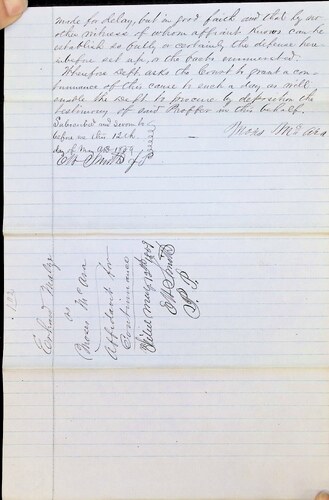 made for delay, but in good faith and that by no
other witness of whom affiant knows can he
establish so fully & certainly the defense here
inbefore set up, & the facts enumerated.
Wherefore Deft. asks the Court to grant a con-
tinuance of this cause to such a day as will
enable the Deft to procure by deposition the
testimony of said Proffer in this behalf.
Subscribed and sworn to
before me this 12th
day of May AD. 1879
Moses McAra
E H Smith J P
Erhard
vs
Moses McAra
Affidavit for
Continuance
Filed May 12th
E H Smith
J. P.